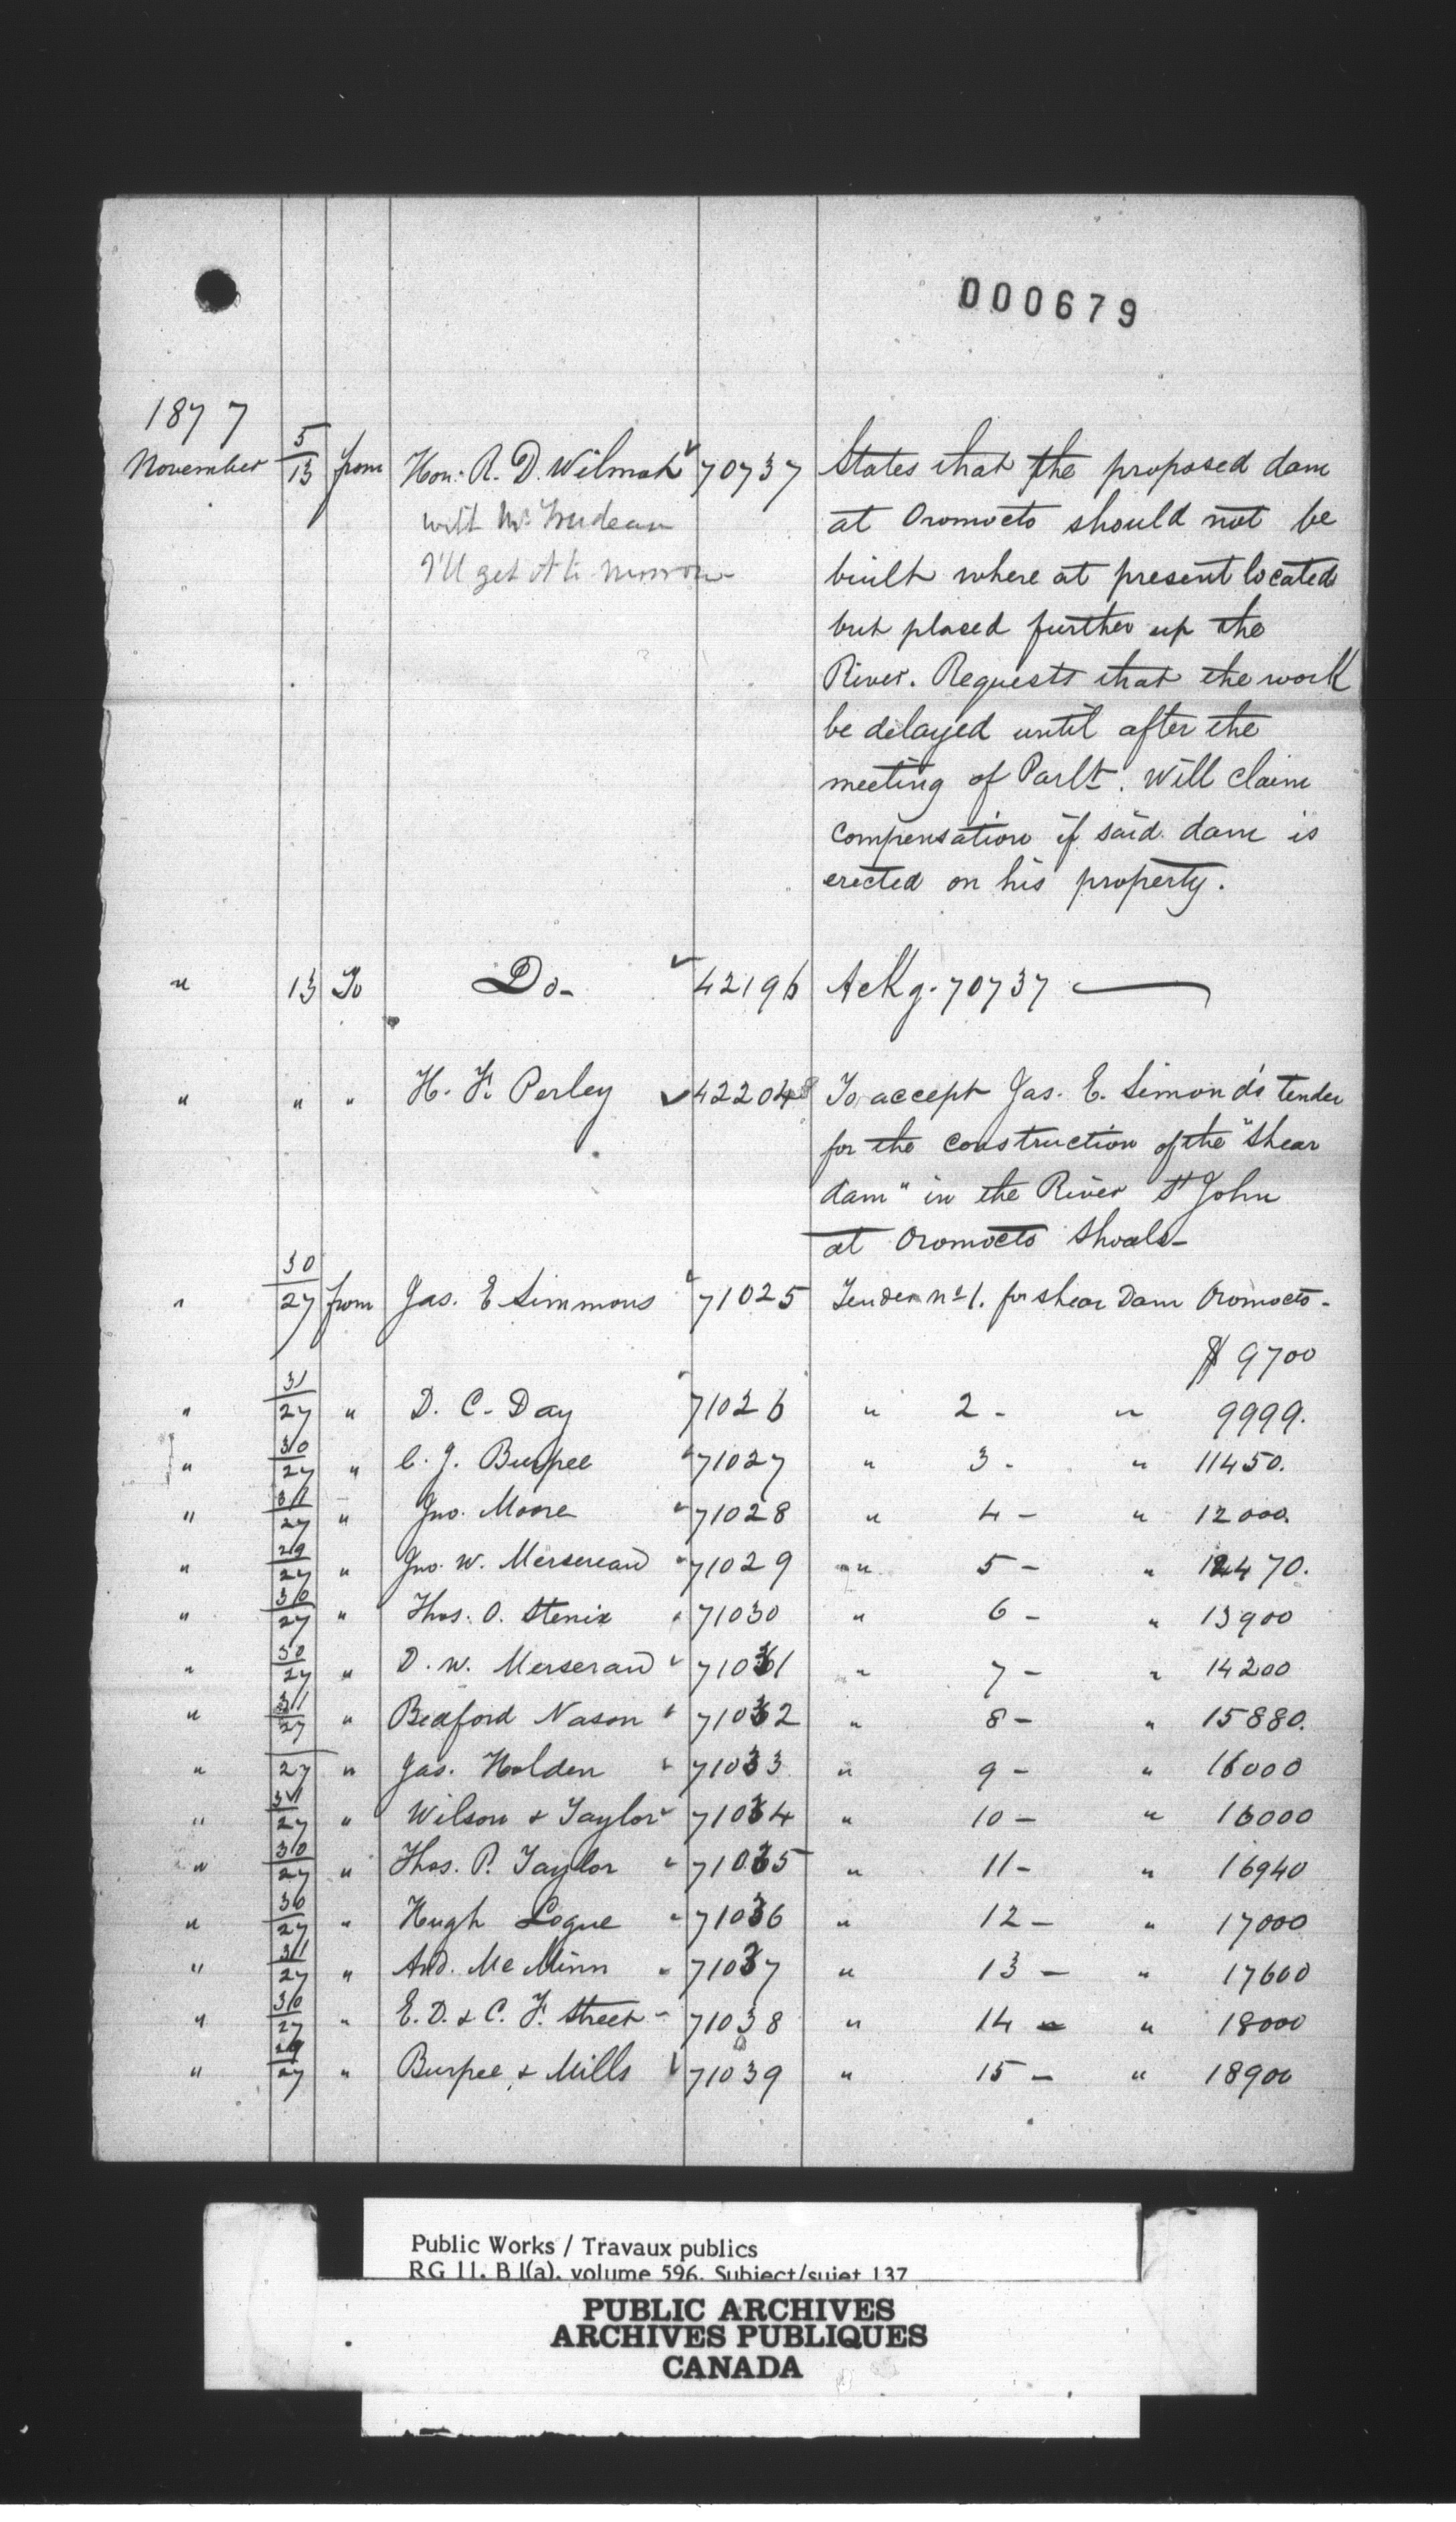 000679
1877
November 5/13 from Hon: R. D. Wilmot 70737 States that the proposed dam
with Mr Trudeau at Oromocto should not be
I'll get it to morrow built where at present located
but placed further up the
River. Requests that the work
be delayed until after the
meeting of Parlt. Will claim
compensation if said dam is
erected on his property.
" 13 To Do- 42196 Ackg. 70737
" " " H. F. Perley 42204 To accept Jas. E. Simond's tender
for the construction of the "shear
dam" in the River St John
at Oromocto Shoals-
" 30/27 from Jas. E Simmons 71025 Tender No 1. for shear Dam Oromocto-
$ 9700
" 31/27 " D. C. Day 71026 " 2 - " 9999.
" 30/27 " C. J. Burpee 71027 " 3 - " 11450.
" 31/27 " Jno. Moore 71028 " 4 - " 12000.
" 29/27 " Jno. W. Mersereau 71029 " 5 - " 12470.
" 30/27 " Thos. O. 71030 " 6 - " 13900
" 30/27 " D. W. Merserau 71031 " 7 - " 14200
" 31/27 " Bedford Nason 71032 " 8 - " 15880.
" 27 " Jas. Holden 71033 " 9 - " 16000
" 31/27 " Wilson & Taylor 71034 " 10 - " 16000
" 30/27 " Thos. P. Taylor 71035 " 11 - " 16940
" 30/27 " Hugh Logue 71036 " 12 - " 17000
" 31/27 " And. McMinn 71037 " 13 - " 17600
" 30/27 " E. D. & C. F. Street 71038 " 14 - " 18000
" 29/27 " Burpee & Mills 71039 " 15 - " 18900
Public Works / Travaux publics
RG 11, B 1(a), volume 596, Subject/sujet 137
PUBLIC ARCHIVES
ARCHIVES PUBLIQUES
CANADA